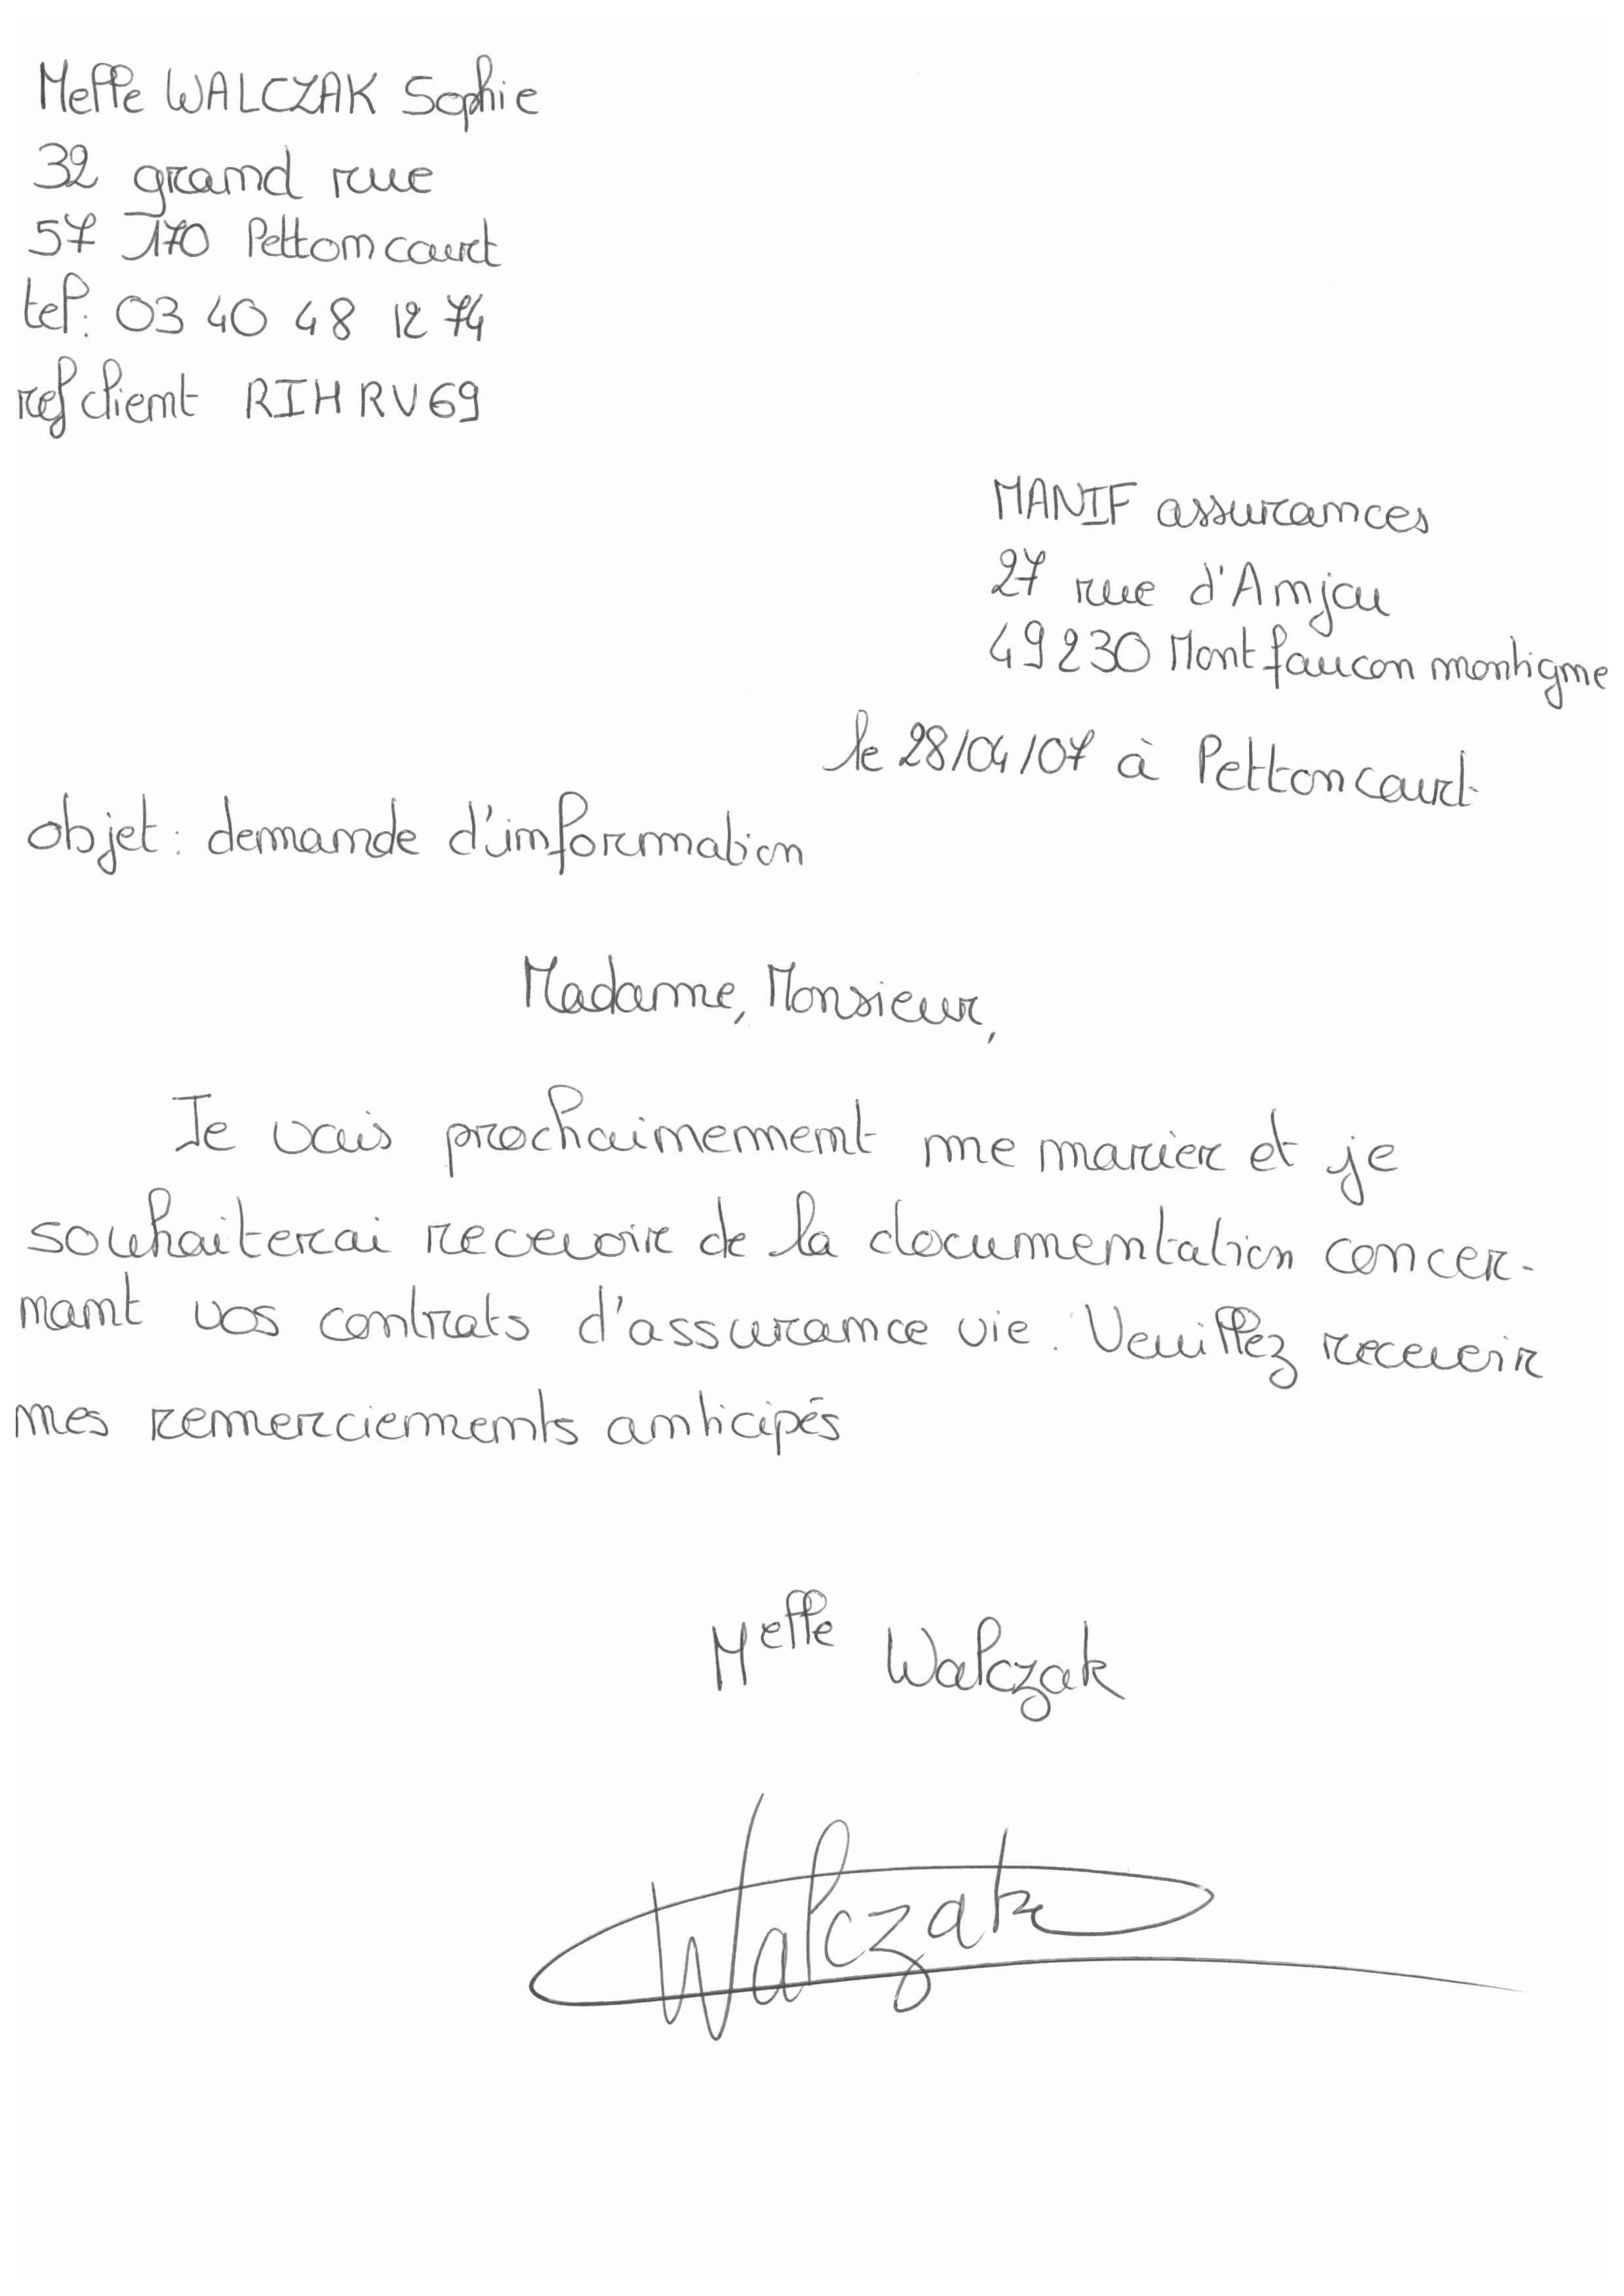 Melle WALCZAK Sophie
32 grand rue
57 170 Pettoncourt
tel: 03 40 48 12 74
ref client RIHRV69
MANIF assurances
27 rue d'Anjou
49230 Montfaucon montigne
le 28/04/07 à Pettoncourt
objet: demande d'information
Madame, Monsieur,
Je vais prochainement me marier et je
souhaiterai recevoir de la documentation concer-
nant vos contrats d'assurance vie. Veuillez recevoir
mes remerciements anticipés
Melle Walczak
Walczak